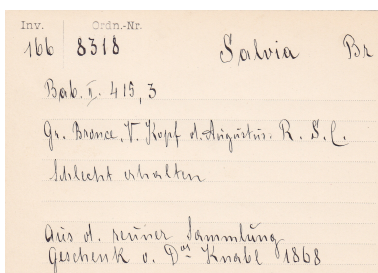 Inv. Ordn.-Nr.
166 8318 Salvia Br
Bab. I. 415, 3
Gr. Bronce, V. Kopf d. Augustus. R. S. C.
Schlecht erhalten
Aus d. reuner Sammlung
Geschenk v. Dr Knabl 1868